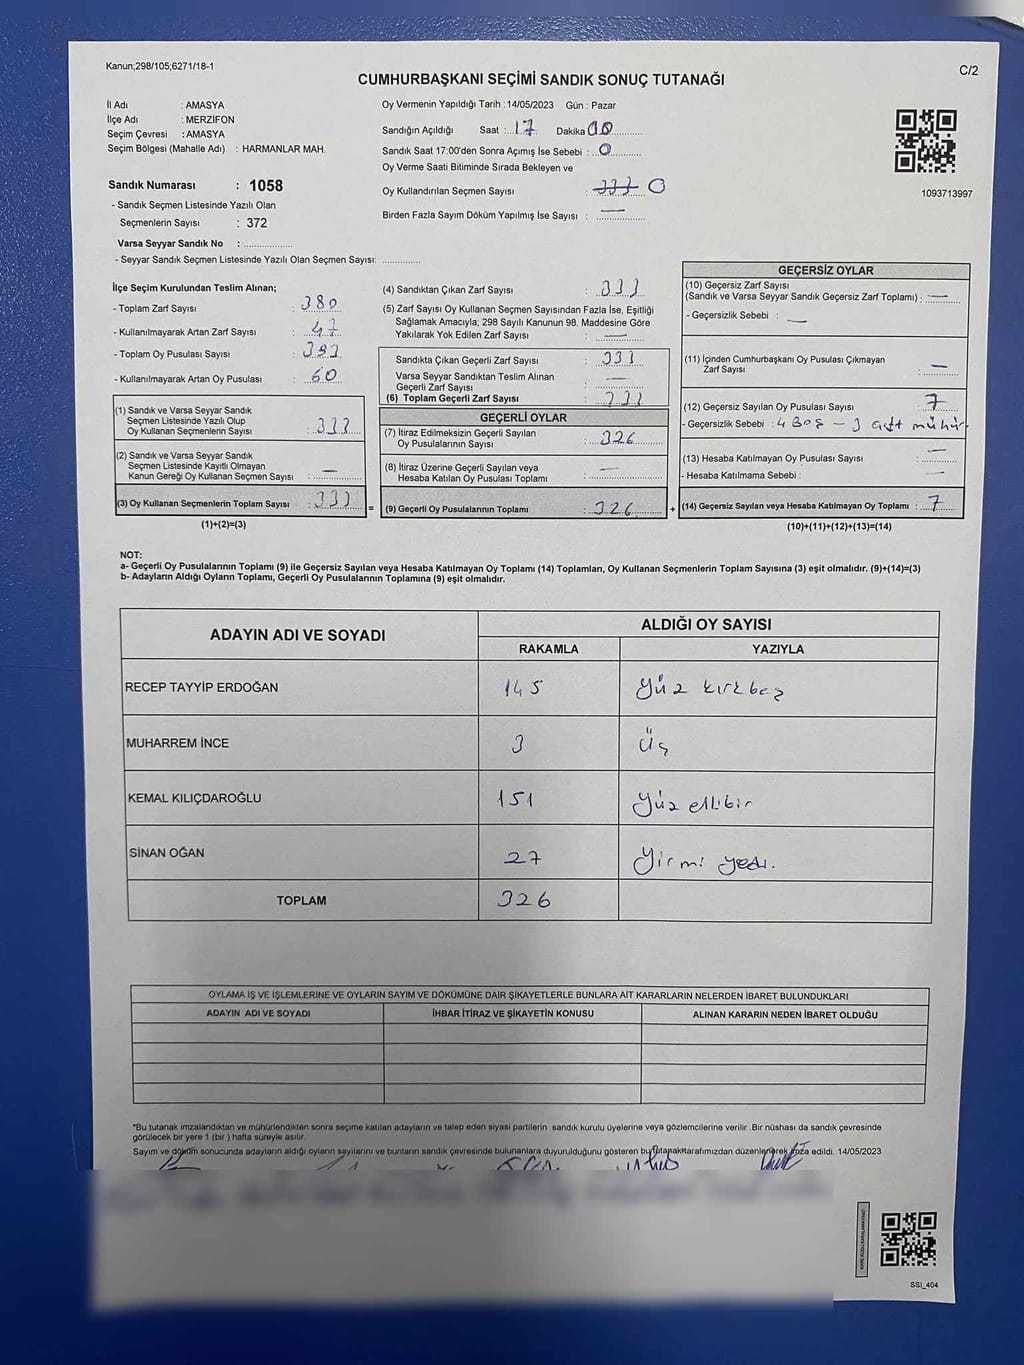 Kanun;298/105;6271/18-1
C/2
CUMHURBAŞKANI SEÇİMİ SANDIK SONUÇ TUTANAĞI
İl Adı : AMASYA
İlçe Adı : MERZİFON
Seçim Çevresi : AMASYA
Seçim Bölgesi (Mahalle Adı) : HARMANLAR MAH.
Sandık Numarası : 1058
- Sandık Seçmen Listesinde Yazılı Olan
Seçmenlerin Sayısı : 372
Varsa Seyyar Sandık No : ................
- Seyyar Sandık Seçmen Listesinde Yazılı Olan Seçmen Sayısı: ............
Oy Vermenin Yapıldığı Tarih :14/05/2023 Gün : Pazar
Sandığın Açıldığı Saat : 17 Dakika 00
Sandık Saat 17:00'den Sonra Açımış İse Sebebi : 0
Oy Verme Saati Bitiminde Sırada Bekleyen ve
Oy Kullandırılan Seçmen Sayısı : 333 0
Birden Fazla Sayım Döküm Yapılmış İse Sayısı : —
1093713997
İlçe Seçim Kurulundan Teslim Alınan;
- Toplam Zarf Sayısı : 380
- Kullanılmayarak Artan Zarf Sayısı : 47
- Toplam Oy Pusulası Sayısı : 393
- Kullanılmayarak Artan Oy Pusulası : 60
(1) Sandık ve Varsa Seyyar Sandık
Seçmen Listesinde Yazılı Olup
Oy Kullanan Seçmenlerin Sayısı : 333
(2) Sandık ve Varsa Seyyar Sandık
Seçmen Listesinde Kayıtlı Olmayan
Kanun Gereği Oy Kullanan Seçmen Sayısı : —
(3) Oy Kullanan Seçmenlerin Toplam Sayısı : 333
(1)+(2)=(3)
(4) Sandıktan Çıkan Zarf Sayısı : 333
(5) Zarf Sayısı Oy Kullanan Seçmen Sayısından Fazla İse, Eşitliği
Sağlamak Amacıyla; 298 Sayılı Kanunun 98. Maddesine Göre
Yakılarak Yok Edilen Zarf Sayısı : —
Sandıkta Çıkan Geçerli Zarf Sayısı : 333
Varsa Seyyar Sandıktan Teslim Alınan
Geçerli Zarf Sayısı : —
(6) Toplam Geçerli Zarf Sayısı : 333
GEÇERLİ OYLAR
(7) İtiraz Edilmeksizin Geçerli Sayılan
Oy Pusulalarının Sayısı : 326
(8) İtiraz Üzerine Geçerli Sayılan veya
Hesaba Katılan Oy Pusulası Toplamı : —
= (9) Geçerli Oy Pusulalarının Toplamı : 326
GEÇERSİZ OYLAR
(10) Geçersiz Zarf Sayısı
(Sandık ve Varsa Seyyar Sandık Geçersiz Zarf Toplamı) : —
- Geçersizlik Sebebi : —
(11) İçinden Cumhurbaşkanı Oy Pusulası Çıkmayan
Zarf Sayısı : —
(12) Geçersiz Sayılan Oy Pusulası Sayısı : 7
- Geçersizlik Sebebi : 4 Boş - 3 çift mühür
(13) Hesaba Katılmayan Oy Pusulası Sayısı : —
- Hesaba Katılmama Sebebi : —
+ (14) Geçersiz Sayılan veya Hesaba Katılmayan Oy Toplamı : 7
(10)+(11)+(12)+(13)=(14)
NOT:
a- Geçerli Oy Pusulalarının Toplamı (9) ile Geçersiz Sayılan veya Hesaba Katılmayan Oy Toplamı (14) Toplamları, Oy Kullanan Seçmenlerin Toplam Sayısına (3) eşit olmalıdır. (9)+(14)=(3)
b- Adayların Aldığı Oyların Toplamı, Geçerli Oy Pusulalarının Toplamına (9) eşit olmalıdır.
ADAYIN ADI VE SOYADI ALDIĞI OY SAYISI
RAKAMLA YAZIYLA
RECEP TAYYİP ERDOĞAN 145 Yüz kırkbeş
MUHARREM İNCE 3 Üç
KEMAL KILIÇDAROĞLU 151 Yüz ellibir
SİNAN OĞAN 27 Yirmi yedi.
TOPLAM 326
OYLAMA İŞ VE İŞLEMLERİNE VE OYLARIN SAYIM VE DÖKÜMÜNE DAİR ŞİKAYETLERLE BUNLARA AİT KARARLARIN NELERDEN İBARET BULUNDUKLARI
ADAYIN ADI VE SOYADI İHBAR İTİRAZ VE ŞİKAYETİN KONUSU ALINAN KARARIN NEDEN İBARET OLDUĞU
*Bu tutanak imzalandıktan ve mühürlendikten sonra seçime katılan adayların ve talep eden siyasi partilerin sandık kurulu üyelerine veya gözlemcilerine verilir .Bir nüshası da sandık çevresinde
görülecek bir yere 1 (bir ) hafta süreyle asılır.
Sayım ve döküm sonucunda adayların aldığı oyların sayılarını ve bunların sandık çevresinde bulunanlara duyurulduğunu gösteren bu tutanak tarafımızdan düzenlenerek imza edildi. 14/05/2023
SSI_404